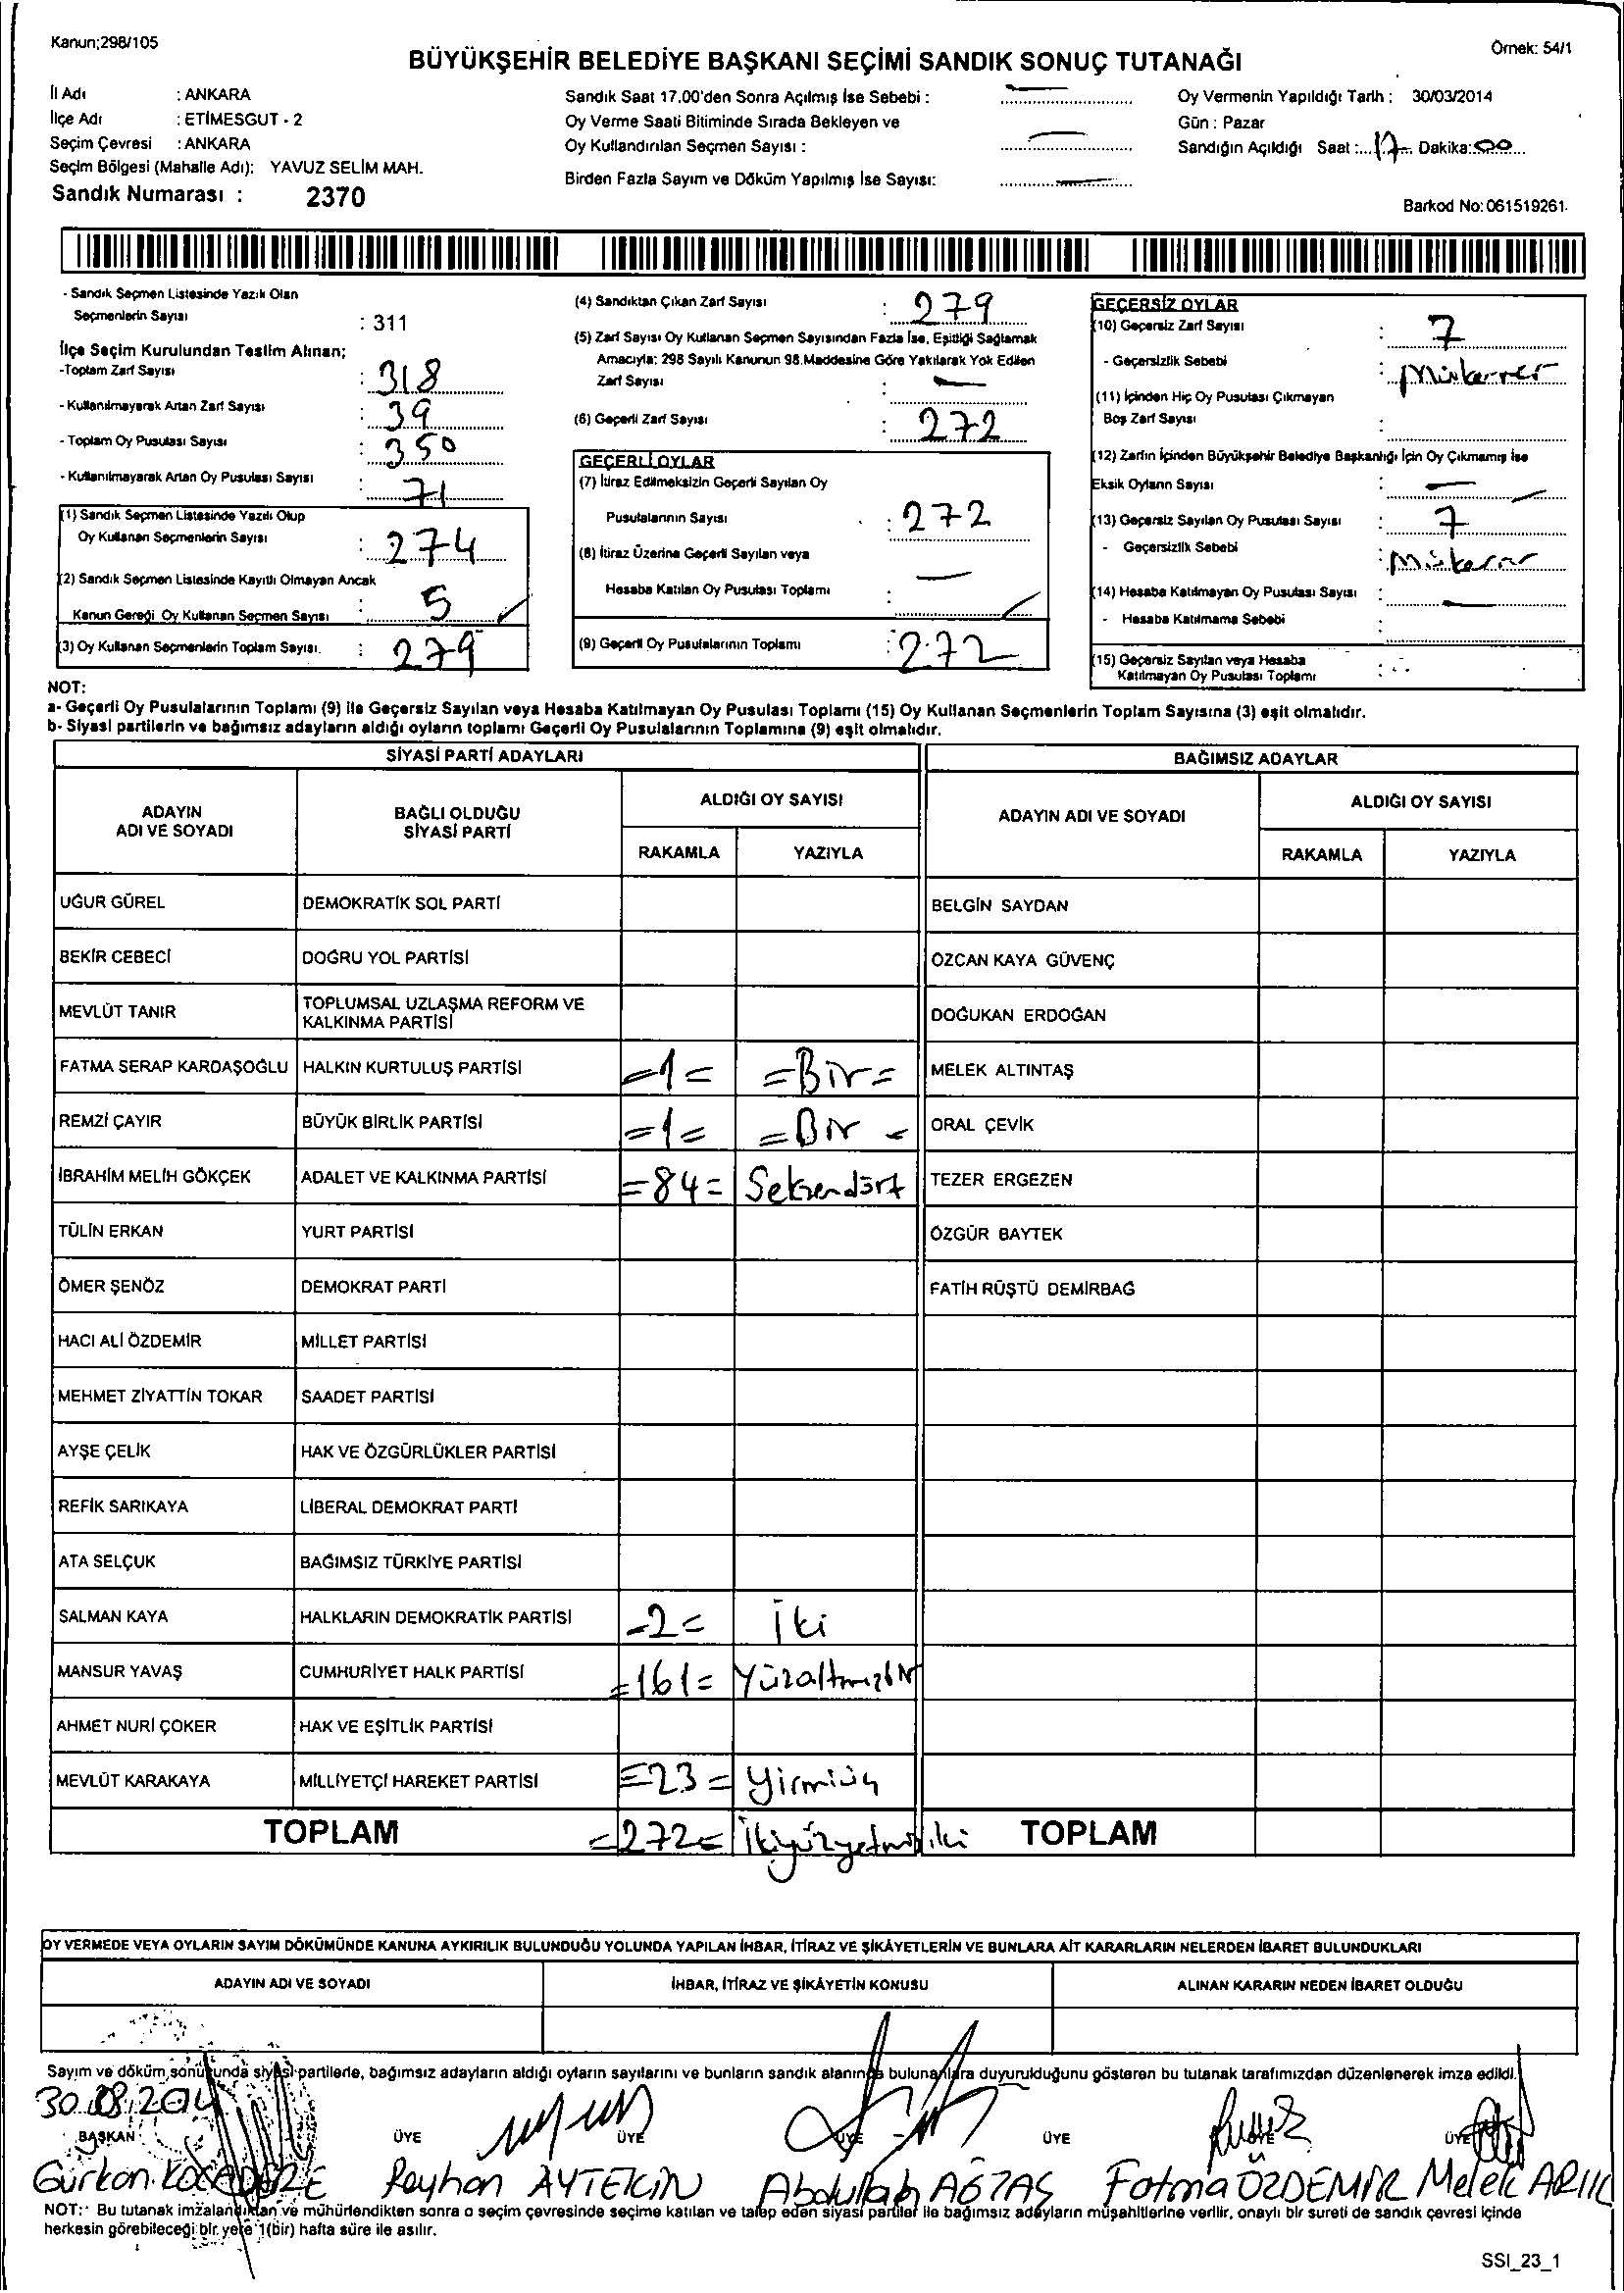 Kanun;298/105
Örnek: 54/1
BÜYÜKŞEHİR BELEDİYE BAŞKANI SEÇİMİ SANDIK SONUÇ TUTANAĞI
İl Adı : ANKARA
İlçe Adı : ETİMESGUT - 2
Seçim Çevresi : ANKARA
Seçim Bölgesi (Mahalle Adı): YAVUZ SELİM MAH.
Sandık Numarası : 2370
Sandık Saat 17.00'den Sonra Açılmış İse Sebebi :
Oy Verme Saati Bitiminde Sırada Bekleyen ve
Oy Kullandırılan Seçmen Sayısı :
Birden Fazla Sayım ve Döküm Yapılmış İse Sayısı:
Oy Vermenin Yapıldığı Tarih : 30/03/2014
Gün : Pazar
Sandığın Açıldığı Saat :...17... Dakika:00...
Barkod No:061519261
- Sandık Seçmen Listesinde Yazılı Olan
Seçmenlerin Sayısı : 311
İlçe Seçim Kurulundan Teslim Alınan;
-Toplam Zarf Sayısı : 318
- Kullanılmayarak Artan Zarf Sayısı : 39
- Toplam Oy Pusulası Sayısı : 350
- Kullanılmayarak Artan Oy Pusulası Sayısı : 71
(1) Sandık Seçmen Listesinde Yazılı Olup
Oy Kullanan Seçmenlerin Sayısı : 274
(2) Sandık Seçmen Listesinde Kayıtlı Olmayan Ancak
Kanun Gereği Oy Kullanan Seçmen Sayısı : 5
(3) Oy Kullanan Seçmenlerin Toplam Sayısı. : 279
(4) Sandıktan Çıkan Zarf Sayısı : 279
(5) Zarf Sayısı Oy Kullanan Seçmen Sayısından Fazla İse, Eşitliği Sağlamak
Amacıyla; 298 Sayılı Kanunun 98.Maddesine Göre Yakılarak Yok Edilen
Zarf Sayısı : —
(6) Geçerli Zarf Sayısı : 272
GEÇERLİ OYLAR
(7) İtiraz Edilmeksizin Geçerli Sayılan Oy
Pusulalarının Sayısı : 272
(8) İtiraz Üzerine Geçerli Sayılan veya
Hesaba Katılan Oy Pusulası Toplamı : —
(9) Geçerli Oy Pusulalarının Toplamı : 272
GEÇERSİZ OYLAR
(10) Geçersiz Zarf Sayısı : 7
- Geçersizlik Sebebi : Mükerrer
(11) İçinden Hiç Oy Pusulası Çıkmayan
Boş Zarf Sayısı :
(12) Zarfın İçinden Büyükşehir Belediye Başkanlığı İçin Oy Çıkmamış İse
Eksik Oyların Sayısı : —
(13) Geçersiz Sayılan Oy Pusulası Sayısı : 7
- Geçersizlik Sebebi :
(14) Hesaba Katılmayan Oy Pusulası Sayısı : —
- Hesaba Katılmama Sebebi :
(15) Geçersiz Sayılan veya Hesaba
Katılmayan Oy Pusulası Toplamı :
NOT:
a- Geçerli Oy Pusulalarının Toplamı (9) ile Geçersiz Sayılan veya Hesaba Katılmayan Oy Pusulası Toplamı (15) Oy Kullanan Seçmenlerin Toplam Sayısına (3) eşit olmalıdır.
b- Siyasi partilerin ve bağımsız adayların aldığı oyların toplamı Geçerli Oy Pusulalarının Toplamına (9) eşit olmalıdır.
SİYASİ PARTİ ADAYLARI
BAĞIMSIZ ADAYLAR
ADAYIN ADI VE SOYADI
BAĞLI OLDUĞU SİYASİ PARTİ
ALDIĞI OY SAYISI
ADAYIN ADI VE SOYADI
ALDIĞI OY SAYISI
RAKAMLA YAZIYLA
RAKAMLA YAZIYLA
UĞUR GÜREL DEMOKRATİK SOL PARTİ BELGİN SAYDAN
BEKİR CEBECİ DOĞRU YOL PARTİSİ ÖZCAN KAYA GÜVENÇ
MEVLÜT TANIR TOPLUMSAL UZLAŞMA REFORM VE KALKINMA PARTİSİ DOĞUKAN ERDOĞAN
FATMA SERAP KARDAŞOĞLU HALKIN KURTULUŞ PARTİSİ =1= =Bir= MELEK ALTINTAŞ
REMZİ ÇAYIR BÜYÜK BİRLİK PARTİSİ =1= =Bir= ORAL ÇEVİK
İBRAHİM MELİH GÖKÇEK ADALET VE KALKINMA PARTİSİ =84= Seksendört TEZER ERGEZEN
TÜLİN ERKAN YURT PARTİSİ ÖZGÜR BAYTEK
ÖMER ŞENÖZ DEMOKRAT PARTİ FATİH RÜŞTÜ DEMİRBAĞ
HACI ALİ ÖZDEMİR MİLLET PARTİSİ
MEHMET ZİYATTİN TOKAR SAADET PARTİSİ
AYŞE ÇELİK HAK VE ÖZGÜRLÜKLER PARTİSİ
REFİK SARIKAYA LİBERAL DEMOKRAT PARTİ
ATA SELÇUK BAĞIMSIZ TÜRKİYE PARTİSİ
SALMAN KAYA HALKLARIN DEMOKRATİK PARTİSİ =2= İki
MANSUR YAVAŞ CUMHURİYET HALK PARTİSİ =161= Yüzaltmışbir
AHMET NURİ ÇOKER HAK VE EŞİTLİK PARTİSİ
MEVLÜT KARAKAYA MİLLİYETÇİ HAREKET PARTİSİ =23= Yirmiüç
TOPLAM =272= İkiyüzyetmişiki TOPLAM
OY VERMEDE VEYA OYLARIN SAYIM DÖKÜMÜNDE KANUNA AYKIRILIK BULUNDUĞU YOLUNDA YAPILAN İHBAR, İTİRAZ VE ŞİKÂYETLERİN VE BUNLARA AİT KARARLARIN NELERDEN İBARET BULUNDUKLARI
ADAYIN ADI VE SOYADI İHBAR, İTİRAZ VE ŞİKÂYETİN KONUSU ALINAN KARARIN NEDEN İBARET OLDUĞU
Sayım ve döküm sonucunda siyasi partilerle, bağımsız adayların aldığı oyların sayılarını ve bunların sandık alanında bulunanlara duyurulduğunu gösteren bu tutanak tarafımızdan düzenlenerek imza edildi.
BAŞKAN ÜYE ÜYE ÜYE ÜYE ÜYE ÜYE
Gürkan Reyhan AYTEKİN Abdullah AĞZAŞ Fatma ÖZDEMİR Melek ARIK
NOT: Bu tutanak imzalandıktan ve mühürlendikten sonra o seçim çevresinde seçime katılan ve talep eden siyasi partiler ile bağımsız adayların müşahitlerine verilir, onaylı bir sureti de sandık çevresi içinde
herkesin görebileceği bir yere 1(bir) hafta süre ile asılır.
SSI_23_1